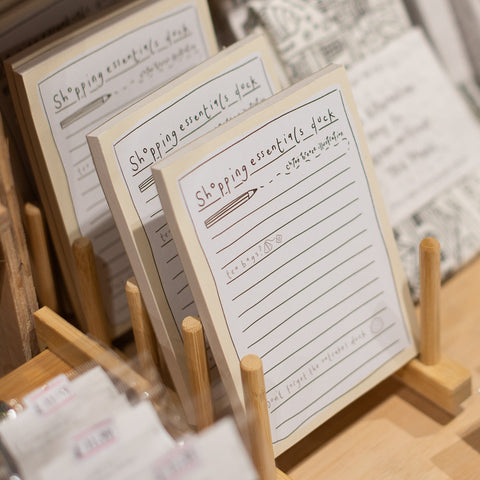 Shopping essentials duck
Shopping essentials duck
Shopping essentials duck
tea bags?
Dont forget the oatcakes duck